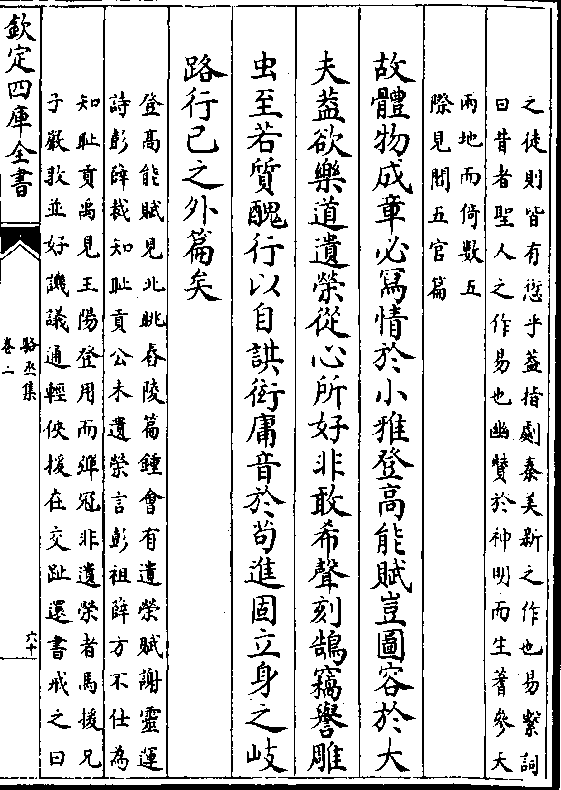 之徒則皆有慙乎葢指劇秦美新之作也易繫詞
曰昔者聖人之作易也幽贊於神明而生蓍參天
兩地而倚數五
際見問五官篇
故體物成章必寫情於小雅登髙能賦豈圖容於大
夫葢欲樂道遺榮從心所好非敢希聲刻鵠竊譽雕
虫至若質醜行以自誤衒庸音於茍進固立身之岐
路行已之外篇矣
登髙能賦見北眺舂陵篇鍾會有遺榮賦謝靈運
詩彭薛裁知耻貢公未遺榮言彭祖薛方不仕為
知耻貢禹見王陽登用而彈冠非遺榮者馬援兄
子嚴敦並好譏議通輕俠援在交趾還書戒之曰
欽定四庫全書
駱丞集
卷二
六十